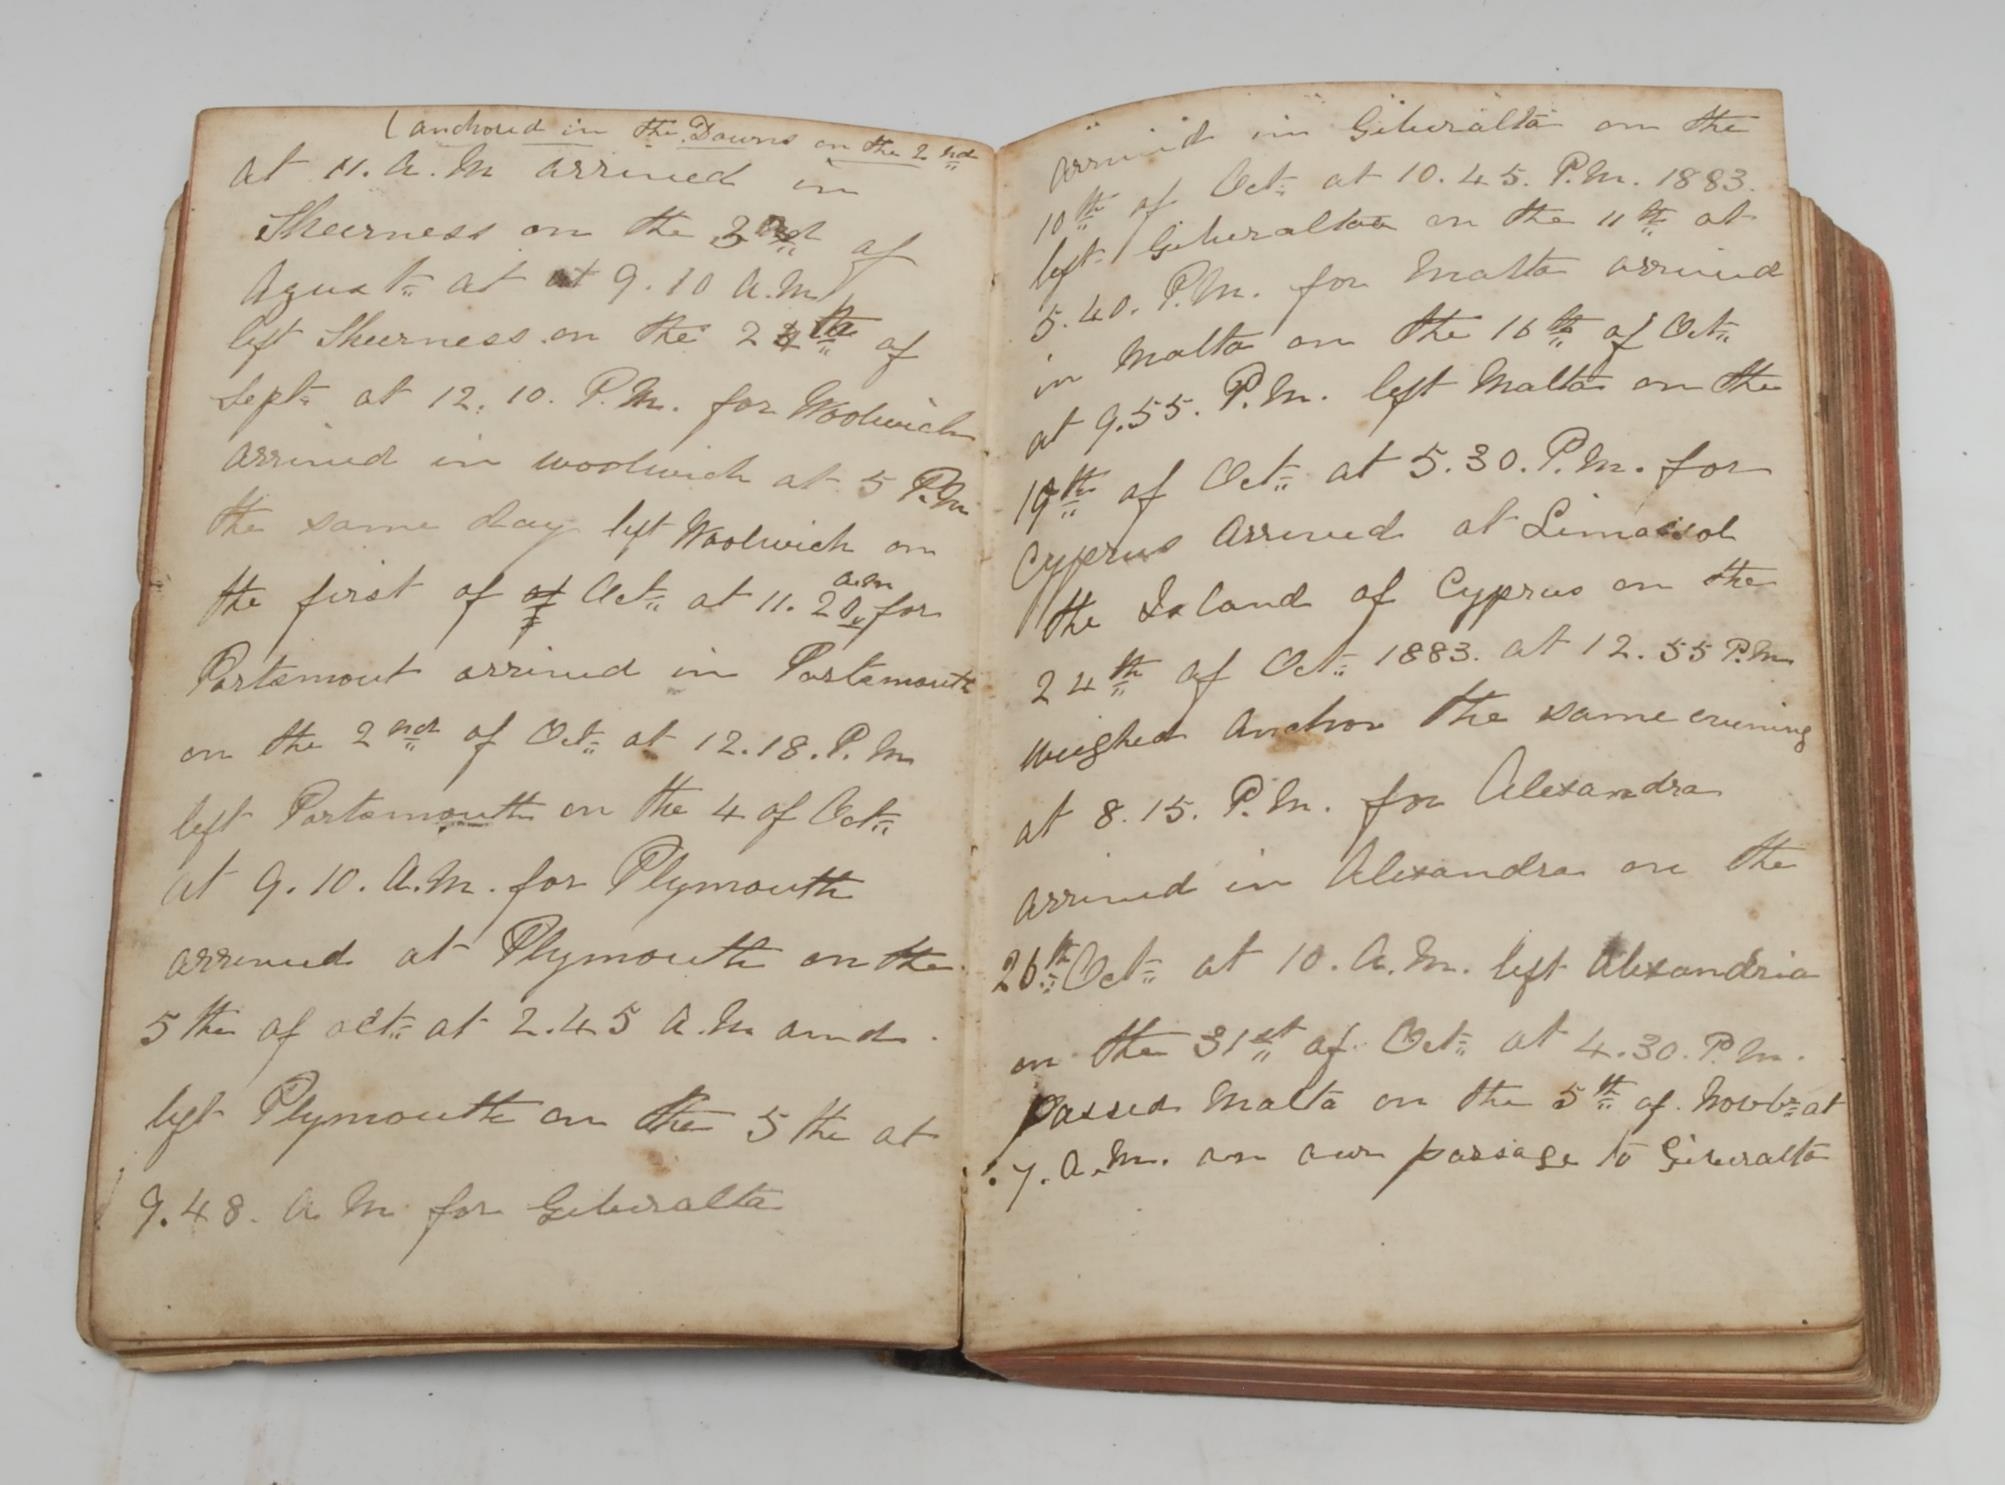 (anchored in the Downs on the 2nd
at 11. A.M arrived in
Sheerness on the 3rd of
Agust at at 9.10 A.M
left Sheerness on the 24th of
Sept at 12.10. P.M. for Woolwich
arrived in woolwich at 5 P.M
the same day left Woolwich on
the first of of Oct at 11.20 a.m for
Portsmout arrived in Portsmouth
on the 2nd of Oct at 12.18. P.M
left Portsmouth on the 4 of Oct
at 9.10. A.M. for Plymouth
arrived at Plymouth on the
5 the of oct at 2.45 A.M and
left Plymouth on the 5 the at
9.48. A M for Giberalta
arrived in Giberalta on the
10th of Oct at 10.45. P.M. 1883.
left Giberalta on the 11th at
5.40. P.M. for Malta arrived
in Malta on the 16th of Oct
at 9.55. P.M. left Malta on the
19th of Oct at 5.30. P.M. for
Cyprus Arrived at Limassol
the Island of Cyprus on the
24th of Oct 1883. at 12.55 P.M
Weighed Anchor the same evening
at 8.15. P.M. for Alexandra
arrived in Alexandra on the
26th Oct at 10. A.M. left Alexandria
on the 31st of Oct at 4.30. P.M.
Passed Malta on the 5th of Novbr at
7. A.M. on our passage to Giberalta